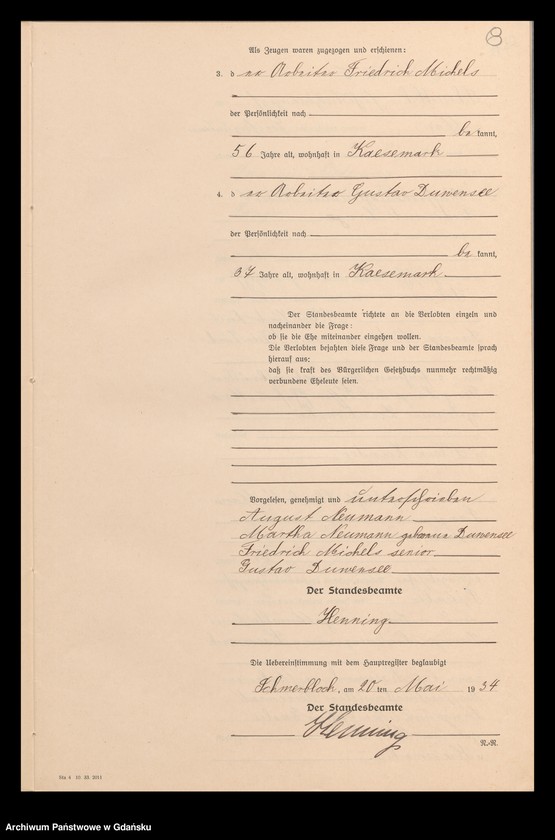 8
Als Zeugen waren zugezogen und erschienen:
3. d er Arbeiter Friedrich Michels
der Persönlichkeit nach
be kannt,
56 Jahre alt, wohnhaft in Kaesemark
4. d er Arbeiter Gustav Duwensee
der Persönlichkeit nach
be kannt,
34 Jahre alt, wohnhaft in Kaesemark
Der Standesbeamte richtete an die Verlobten einzeln und
nacheinander die Frage:
ob sie die Ehe miteinander eingehen wollen.
Die Verlobten bejahten diese Frage und der Standesbeamte sprach
hierauf aus:
daß sie kraft des Bürgerlichen Gesetzbuchs nunmehr rechtmäßig
verbundene Eheleute seien.
Vorgelesen, genehmigt und unterschrieben
August Neumann
Martha Neumann geborene Duwensee
Friedrich Michels senior
Gustav Duwensee
Der Standesbeamte
Henning
Die Uebereinstimmung mit dem Hauptregister beglaubigt
Schmerblock, am 20 ten Mai 19 34
Der Standesbeamte
Henning
Archiwum Państwowe w Gdańsku